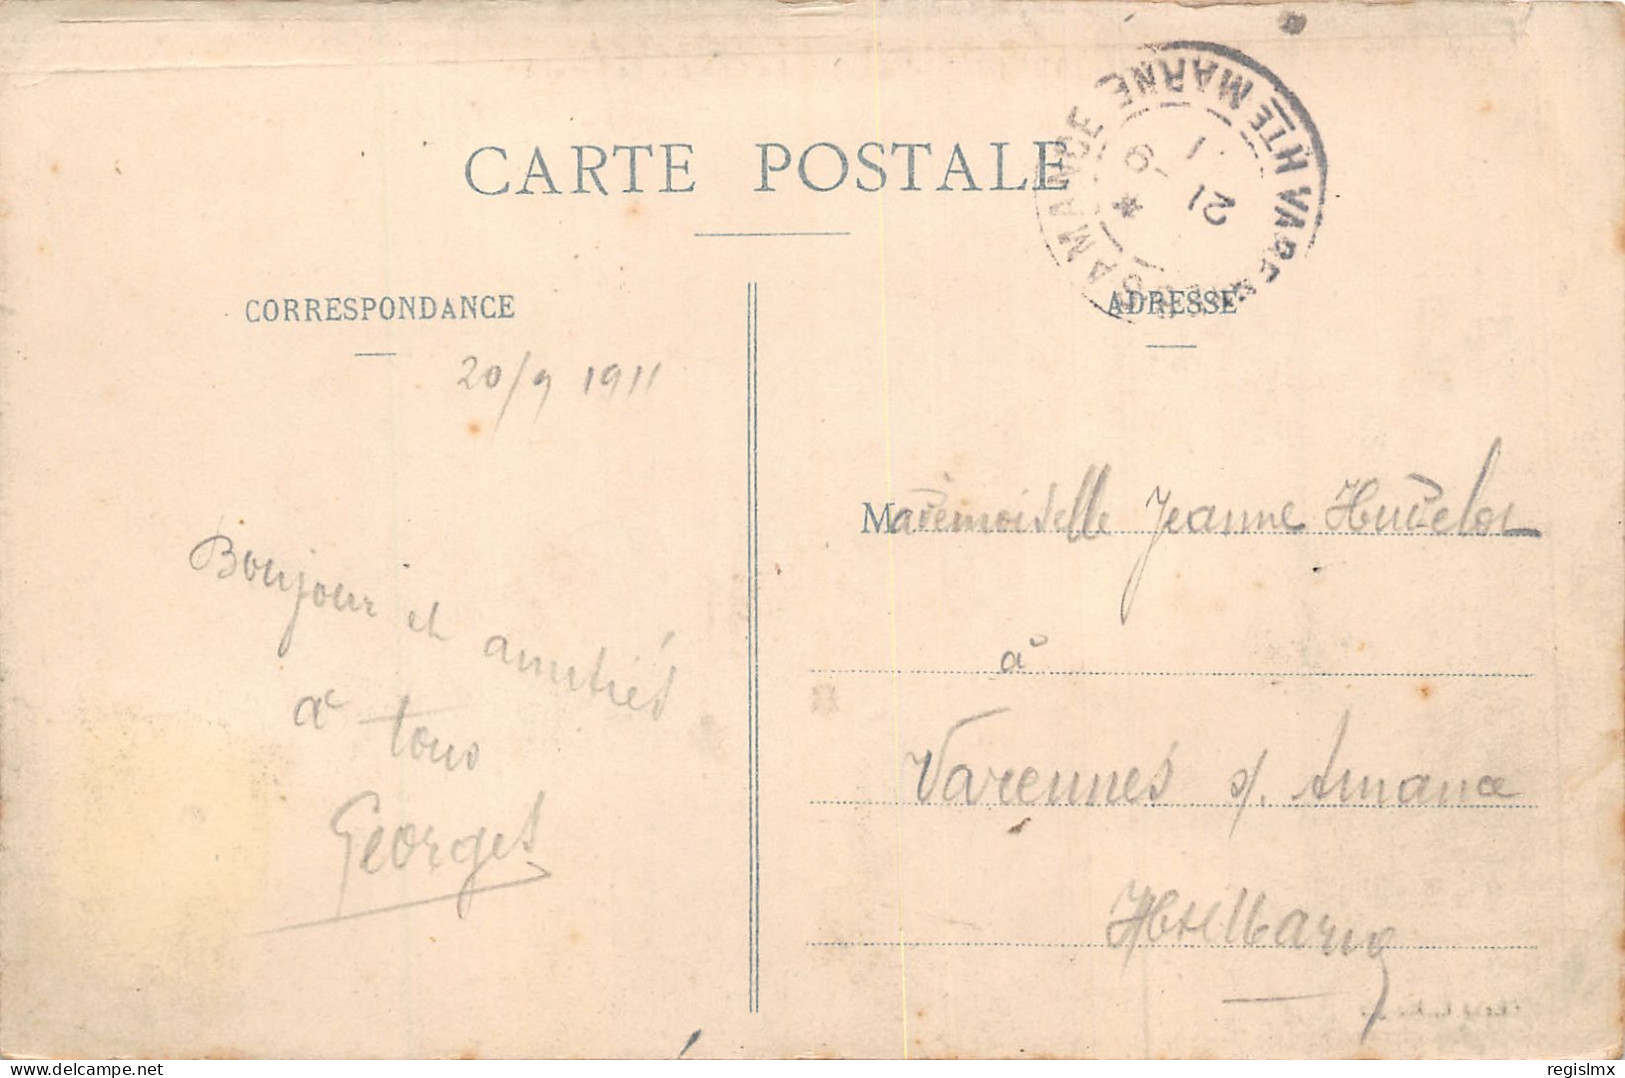 CARTE POSTALE
CORRESPONDANCE
20/9 1911
Bonjour et amitiés
à tous
Georges
HTE MARNE
21
9
ADRESSE
Mademoiselle Jeanne Hudelot
à
Varennes s/. Amance
Hte Marne
regislmx
delcampe.net